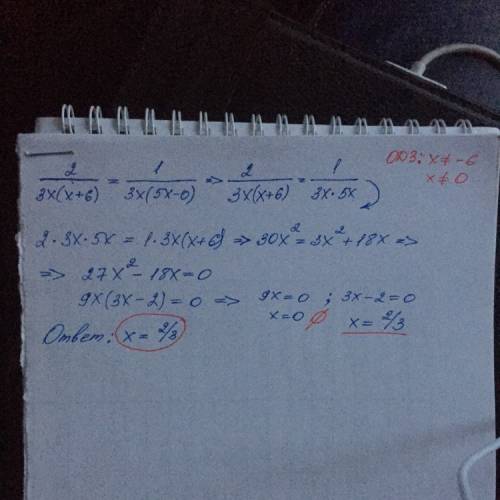 ОДЗ: x ≠ -6
x ≠ 0
2/(3x(x+6)) = 1/(3x(5x-0)) => 2/(3x(x+6)) = 1/(3x·5x)
2·3x·5x = 1·3x(x+6) => 30x² = 3x² + 18x =>
=> 27x² - 18x = 0
9x(3x-2) = 0 => 9x = 0 ; 3x-2 = 0
x = 0 ∅ x = 2/3
Ответ: x = 2/3